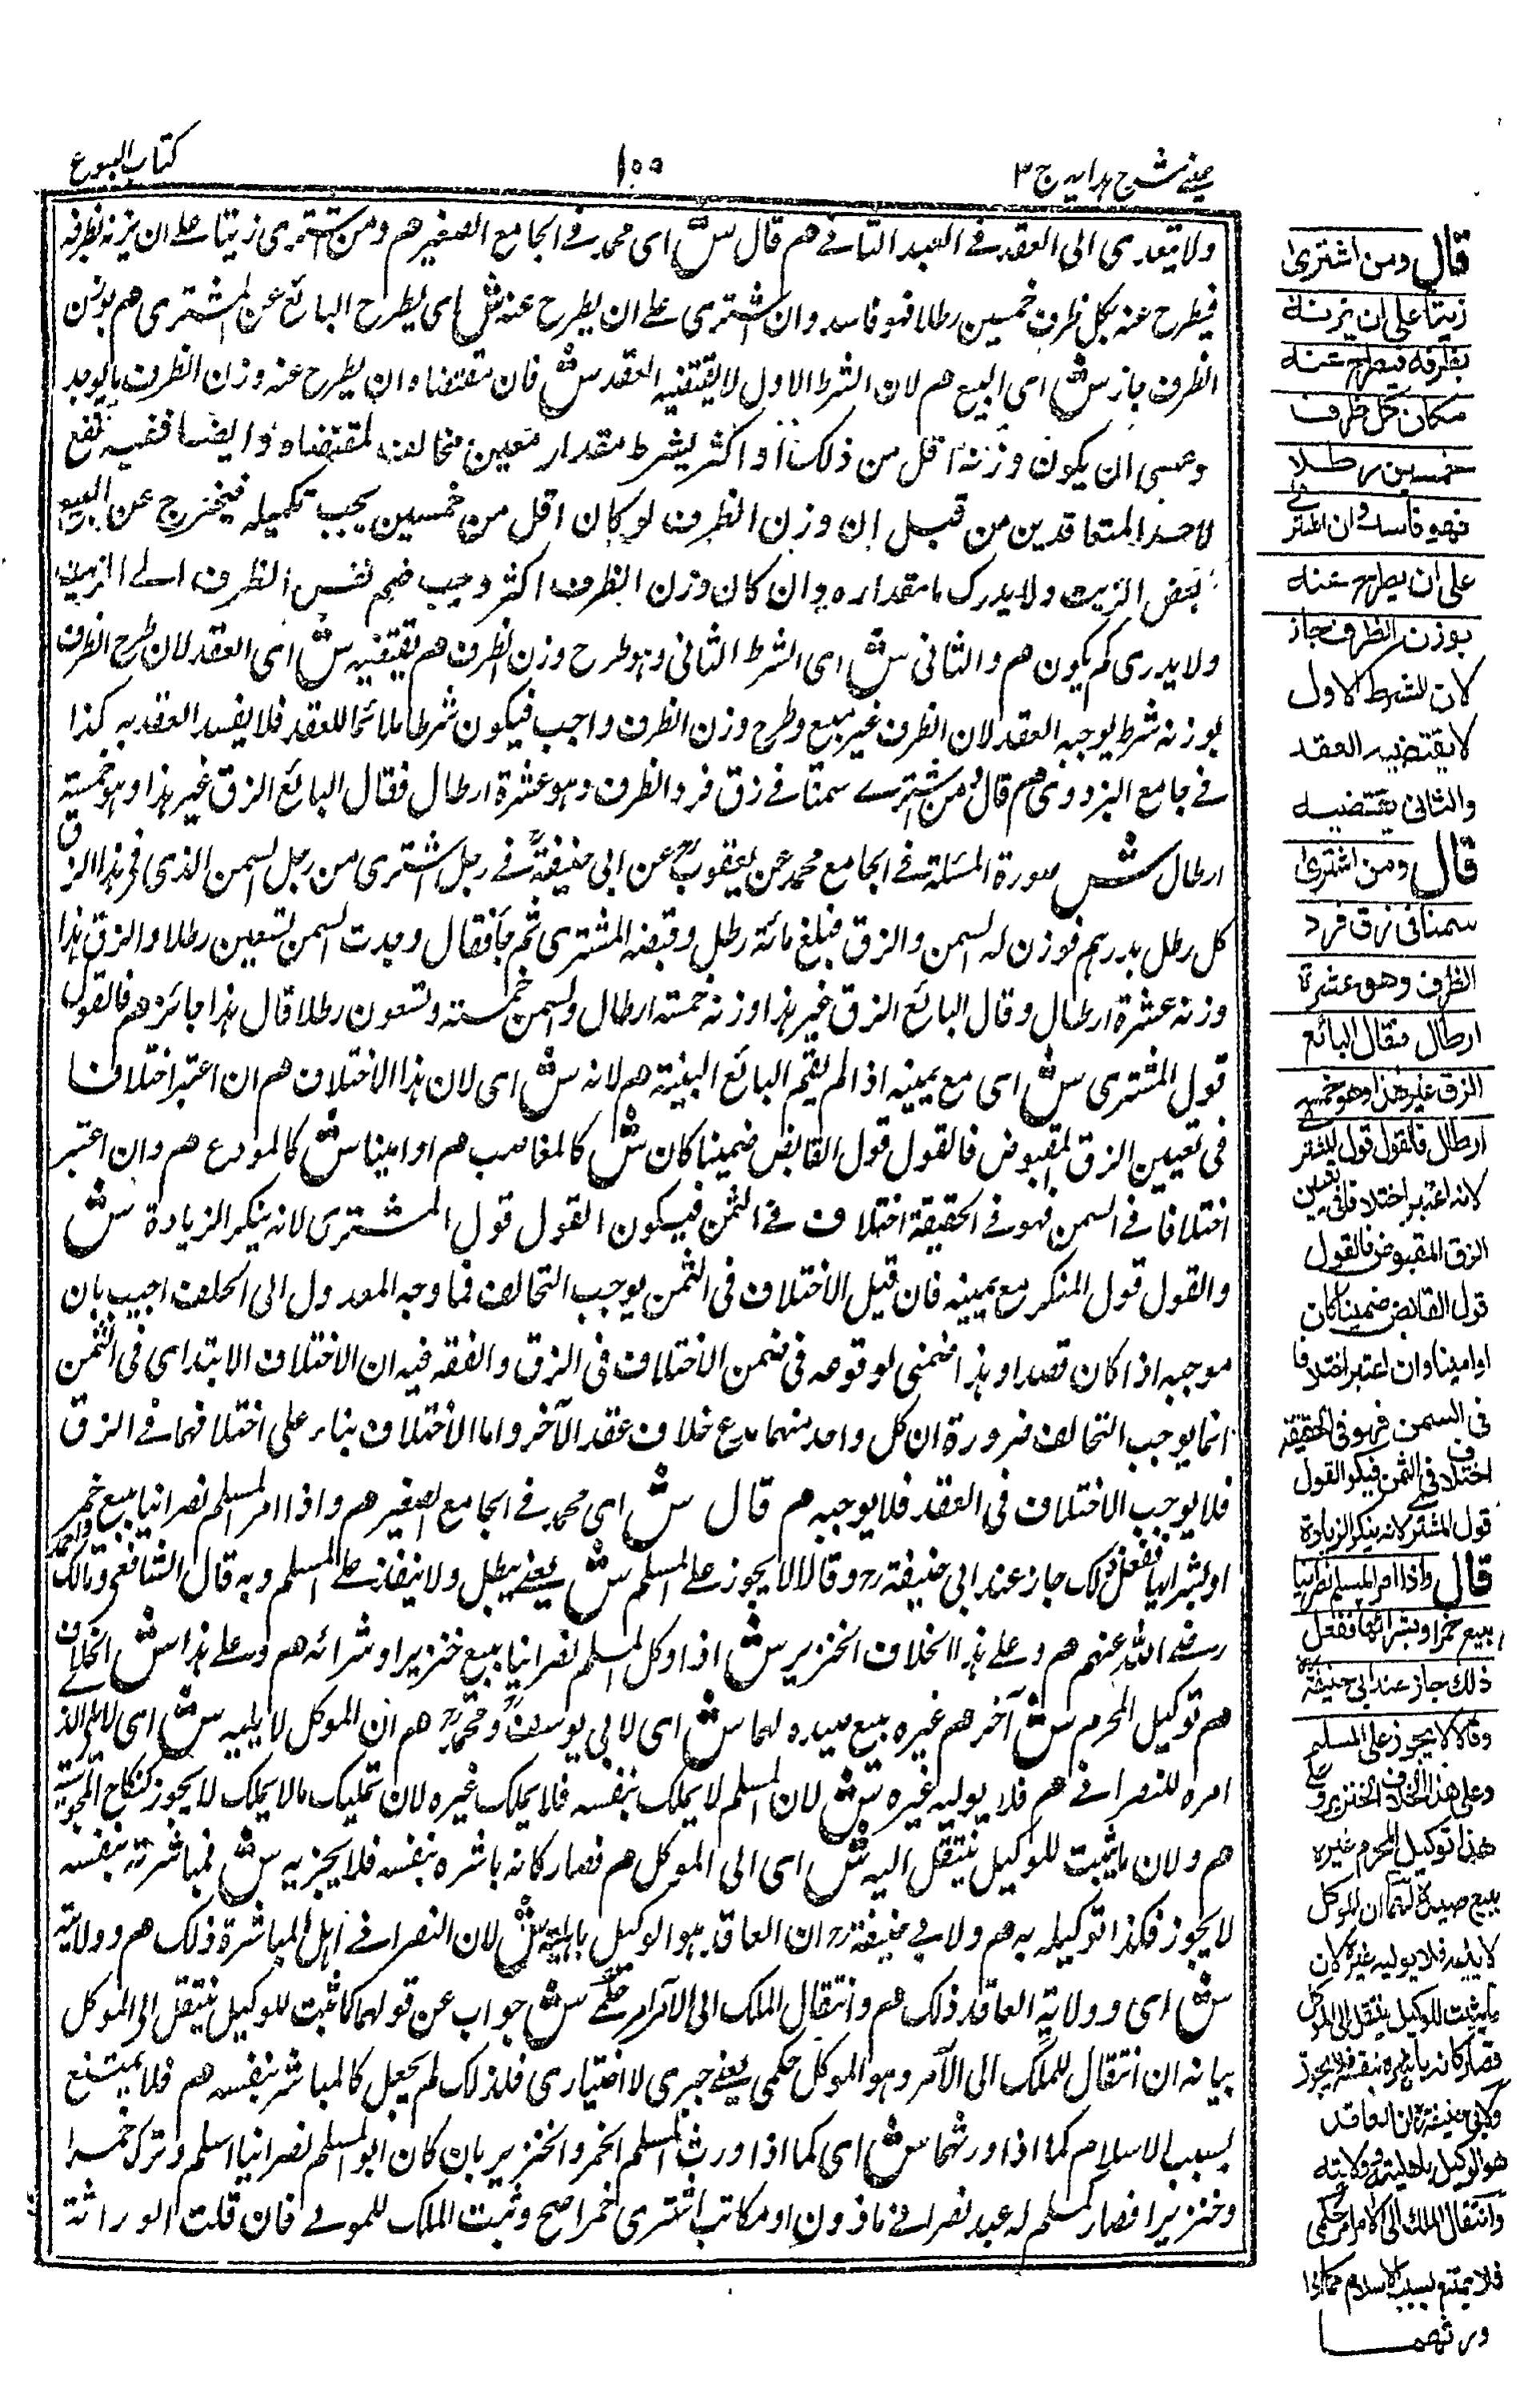 عيني شرح هدايه ج ٣
١٠٠
كتاب البيوع
ولا يتعدى الى العقد فے العبد الثانے هم قال ش اى محمد فے الجامع الصغير هم ومن اشترى زيتا علے ان يزنه بظرفه
فيطرح عنه بكل ظرف خمسين رطلا فهو فاسد وان اشترى علے ان يطرح عنه ش اى يطرح البائع عن المشترى هم بوزن
الظرف جاز ش اى البيع هم لان الشرط الاول لا يقتضيه العقد ش فان مقتضاه ان يطرح عنه وزن الظرف ما يوجد
وعسى ان يكون وزنه اقل من ذلك او اكثر فشرط مقدار معين مخالف لمقتضاه وايضا ففيه نفع
لاحد المتعاقدين من قبل ان وزن الظرف لو كان اقل من خمسين يجب تكميله فيخرج عن البيع
بعض الزيت ولا يدرك ما مقداره وان كان وزن الظرف اكثر وجب ضم نفس الظرف الے الزيت
ولا يدرى كم يكون هم والثانى ش اى الشرط الثانى وهو طرح وزن الظرف هم يقتضيه ش اى العقد لان طرح الظرف
بوزنه شرط يوجبه العقد لان الظرف غير مبيع وطرح وزن الظرف واجب فيكون شرطا ملائما للعقد فلا يفسد العقد به كذا
فے جامع البزدوى هم قال ومن اشترے سمنا فے زق فرد الظرف وهو عشرة ارطال فقال البائع الزق غير هذا وهو خمسة
ارطال ش صورة المسئلة فے الجامع محمد عن يعقوب عن ابى حنيفة فے رجل اشترى من رجل السمن الذى فى هذا الزق
كل رطل بدرهم فوزن له السمن والزق فبلغ مائة رطل وقبضه المشترى ثم جا فقال وجدت السمن تسعين رطلا والزق هذا
وزنه عشرة ارطال وقال البائع الزق غير هذا وزنه خمسة ارطال والسمن خمسة وتسعون رطلا قال هذا جائز هم فالقول
قول المشترى ش اى مع يمينه اذا لم يقم البائع البينة هم لانه ش اى لان هذا الاختلاف هم ان اعتبر اختلافا
فى تعيين الزق المقبوض فالقول قول القابض ضمينا كان ش كالغاصب هم او امينا ش كالمودع هم وان اعتبر
اختلافا فے السمن فهو فے الحقيقة اختلاف فے الثمن فيكون القول قول المشترى لانه ينكر الزيادة ش
والقول قول المنكر مع يمينه فان قيل الاختلاف فى الثمن يوجب التحالف فما وجه العدول الى الحلف اجيب بان
موجبه اذا كان قصدا وهذا ضمنى لوقوعه فى ضمن الاختلاف فى الزق والفقه فيه ان الاختلاف الابتداى فى الثمن
انما يوجب التحالف ضرورة ان كل واحد منهما يدع خلاف عقد الآخر واما الاختلاف بناء على اختلافهما فے الزق
فلا يوجب الاختلاف فى العقد فلا يوجبه هم قال ش اى محمد فے الجامع الصغير هم واذا امر المسلم نصرانيا ببيع خمر
او بشرائها ففعل ذلك جاز عند ابى حنيفة رح وقالا لا يجوز علے المسلم ش يعنے يبطل ولا ينفذ علے المسلم وبه قال الشافعى ومالك واحمد
رضے الله عنهم هم وعلے هذا الخلاف الخنزير ش اذا وكل المسلم نصرانيا ببيع خنزير او شرائه هم وعلے هذا ش الخلاف
هم توكيل المحرم ش آخر هم غيره ببيع صيده لهما ش اى لابى يوسف ومحمد هم ان الموكل لا يليه ش اى لا يلى الذى
امره للنصرانے هم فلا يوليه غيره ش لان المسلم لا يملك بنفسه فلا يملك غيره لان تمليك مالا يملك لا يجوز كنكاح المجوسية
هم ولان ما يثبت للوكيل ينتقل اليه ش اى الى الموكل هم فصار كانه باشره بنفسه فلا يجزيه ش فمباشرته بنفسه
لا يجوز فكذا توكيله به هم ولابے حنيفة رح ان العاقد هو الوكيل باهليته ش لان النصرانے اهل لمباشرة ذلك هم وولايته
ش اى وولاية العاقد ذلك هم وانتقال الملك الى الآمر امر حكمے ش جواب عن قولهما كما ثبت للوكيل ينتقل الى الموكل
بيانه ان انتقال الملك الى الآمر وهو الموكل حكمى يعنے جبرى لا اختيارى فلذلك لم يجعل كالمباشر بنفسه هم فلا يمتنع
بسبب الاسلام كما اذا ورثهما ش اى كما اذا ورث المسلم الخمر والخنزير بان كان ابو المسلم نصرانيا اسلم وترك خمرا
وخنزيرا فصار كمسلم له عبد نصرانے ماذون او مكاتب اشترى خمرا صح وثبت الملك للمولے فان قلت الوراثة
قال ومن اشترى
زيتا على ان يزنه
بظرفه فيطرح عنه
مكان كل ظرف
خمسين رطلا
فهو فاسد وان اشترى
على ان يطرح عنه
بوزن الظرف جاز
لان الشرط الاول
لا يقتضيه العقد
والثانى يقتضيه
قال ومن اشترى
سمنا فى زق فرد
الظرف وهو عشرة
ارطال فقال البائع
الزق غير هذا وهو خمسة
ارطال فالقول قول المشترى
لانه اعتبر اختلافا فى تعيين
الزق المقبوض فالقول
قول القابض ضمينا كان
او امينا وان اعتبر اختلافا
فى السمن فهو فى الحقيقة
اختلاف فى الثمن فيكون القول
قول المشترى لانه ينكر الزيادة
قال واذا امر المسلم نصرانيا
ببيع خمر او بشرائها ففعل
ذلك جاز عند ابى حنيفة
وقالا لا يجوز على المسلم
وعلى هذا الخلاف الخنزير وعلى
هذا توكيل المحرم غيره
ببيع صيده لهما ان الموكل
لا يليه فلا يوليه غيره لان
ما يثبت للوكيل ينتقل الى الموكل
فصار كانه باشره بنفسه فلا يجوز
ولابى حنيفة ان العاقد
هو الوكيل باهليته وولايته
وانتقال الملك الى الآمر امر حكمى
فلا يمتنع بسبب الاسلام كما اذا
ورثهما